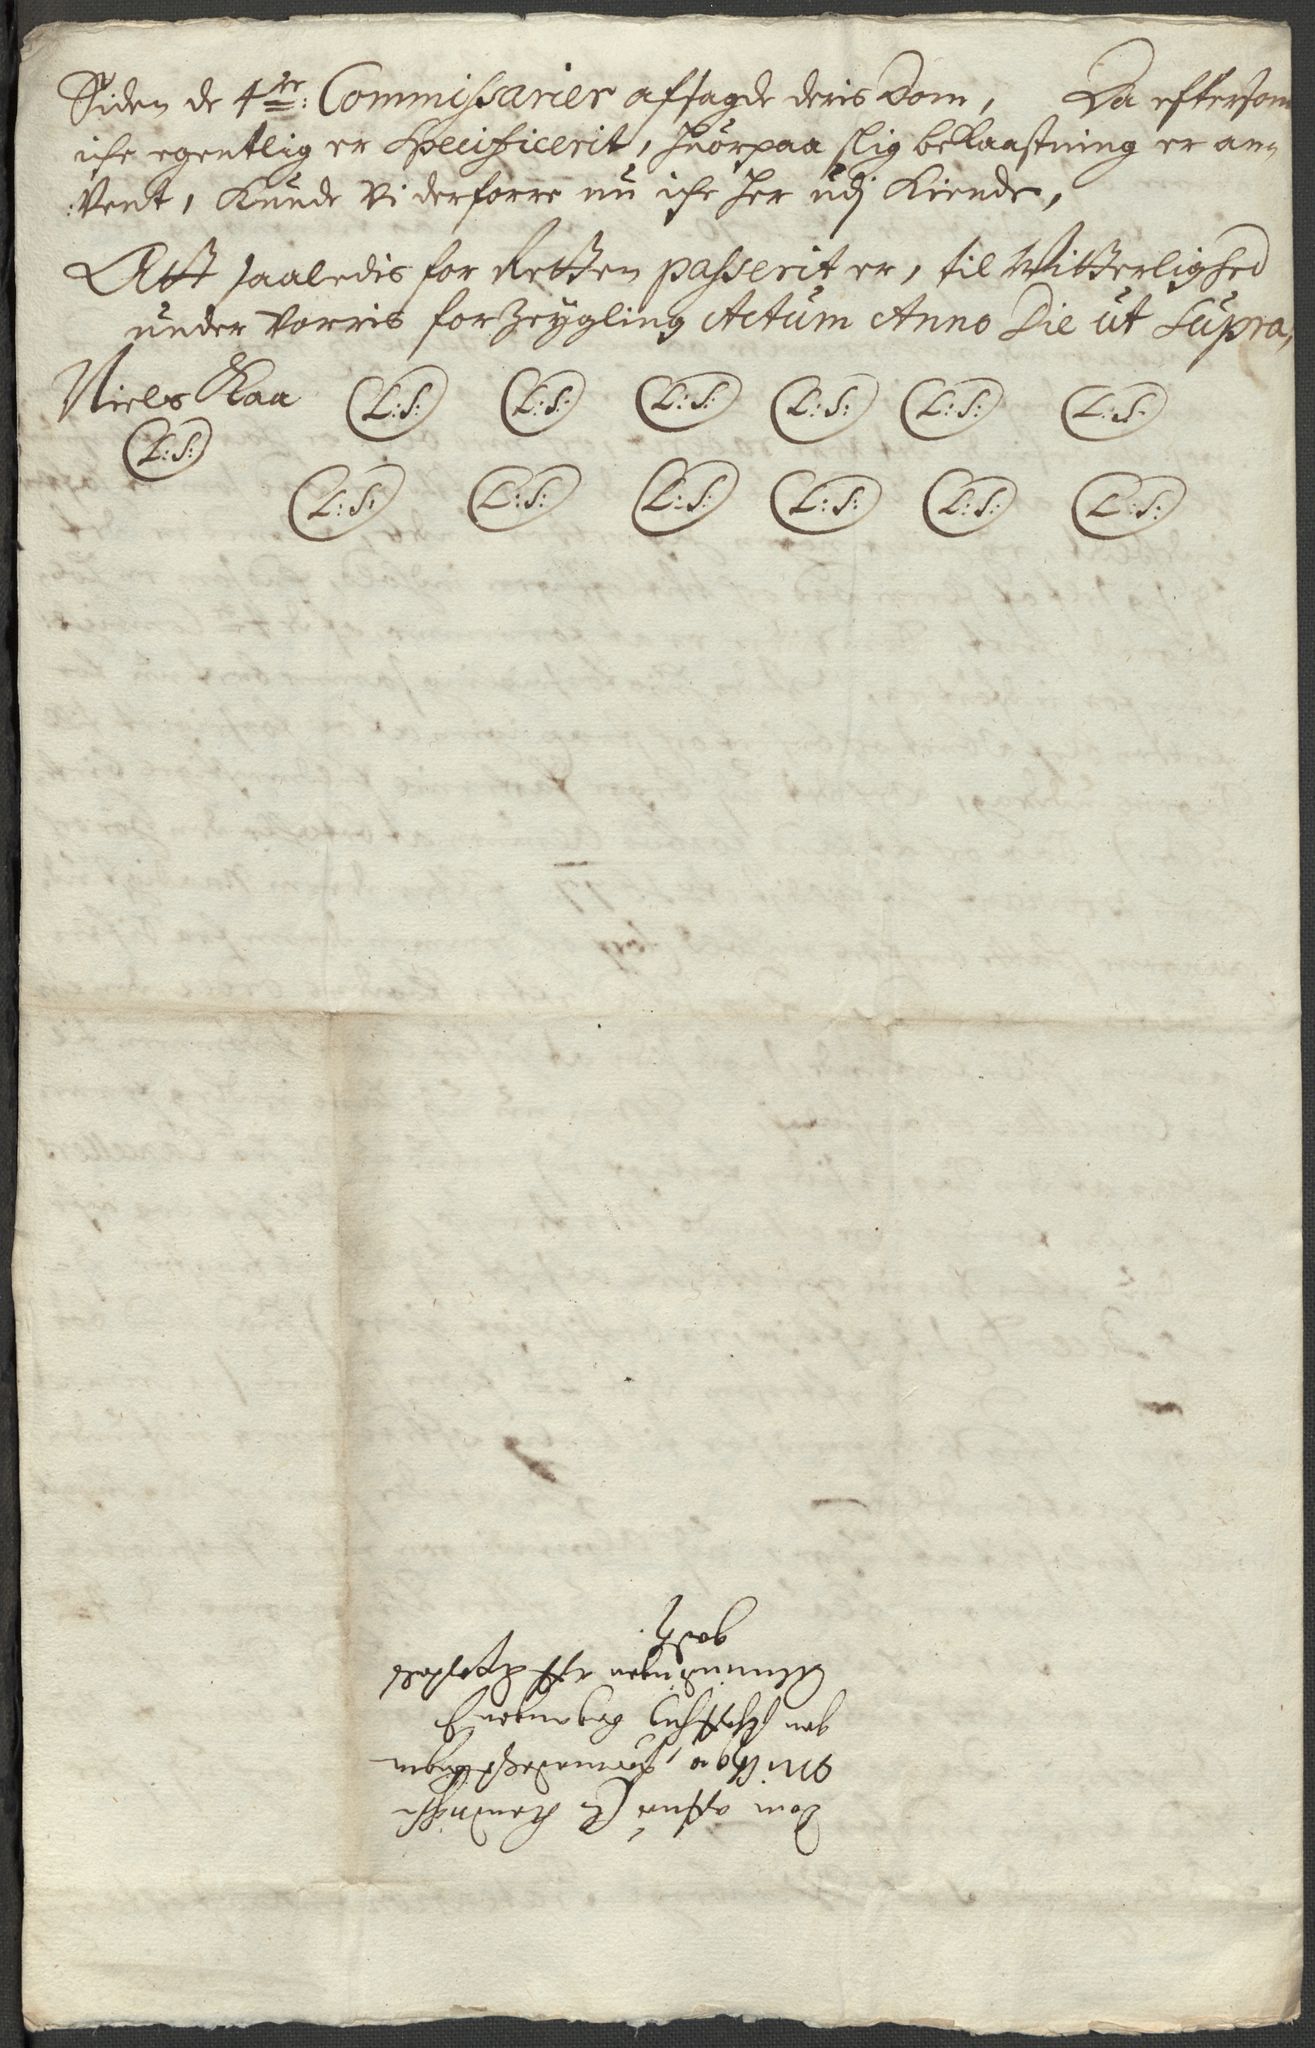 Siden de 4re: Commissarier afsagde deris Dom, Da eftersom
iche egentlig er Specificerit, huorpaa slig bekaastning er an-
vent, Kunde Vi derforre nu iche her udj Kiende,
Att saaledis for Retten passerit er, til Witterlighed
under Vorris forZeygling Actum Anno Die ut Supra,
Niels Kaa L:S: L:S: L:S: L:S: L:S: L:S:
L:S:
L:S: L:S: L:S: L:S: L:S: L:S:
Dom
gen
Almindingen
godtz